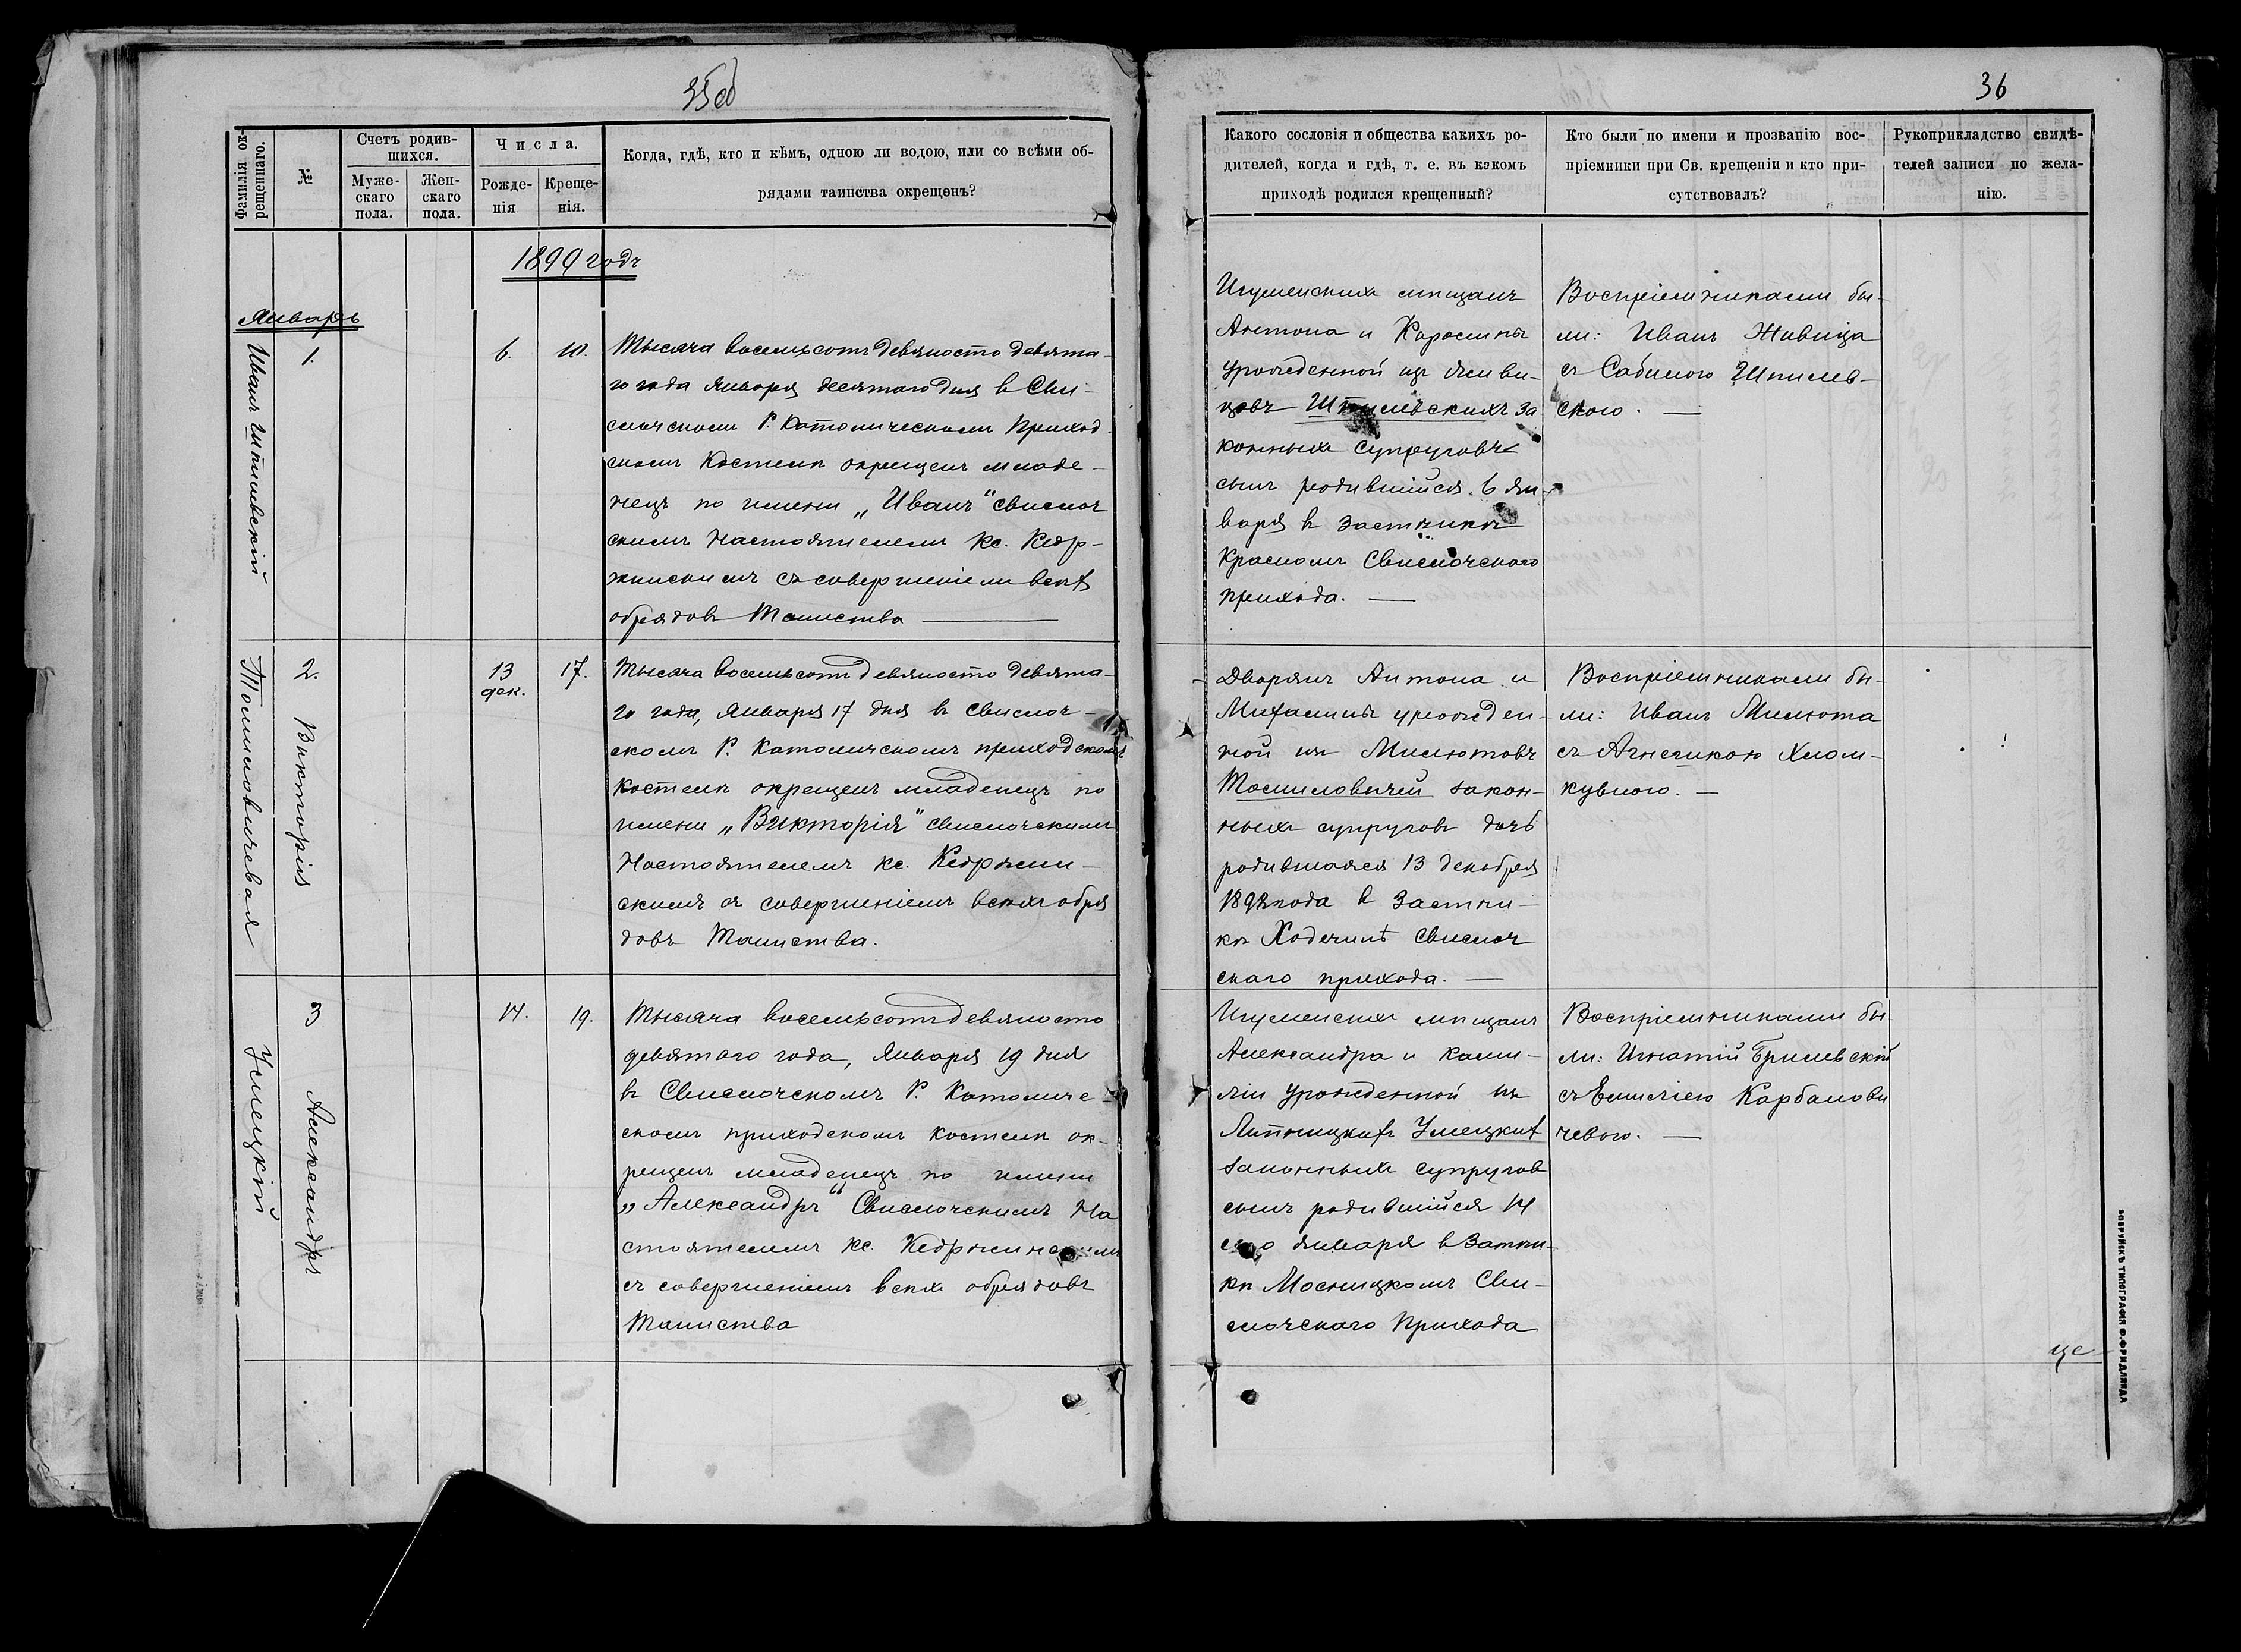 35об
Фамилія ок-
рещеннаго.
№
Счетъ родив-
шихся.
Муже-
скаго
пола.
Жен-
скаго
пола.
Числа.
Рожде-
нія
Креще-
нія.
Когда, гдѣ, кто и кѣмъ, одною ли водою, или со всѣми об-
рядами таинства окрещенъ?
1899 годъ
Январь
Иванъ Шпилевскій
1.
6.
10.
Тысяча восемьсотъ девяносто девята-
го года Января десятого дня в Сви-
слочскомъ Р. Католическомъ Приход
скомъ Костелѣ окрещенъ младе-
нецъ по имени „Иванъ“ Свислоч
скимъ Настоятелемъ Кс. Кедр-
жинскимъ съ совершеніемъ всѣхъ
обрядовъ Таинства
Томиловичевая
2.
Викторія
13
дек.
17.
Тысяча восемьсотъ девяносто девята-
го года, Января 17 дня в Свислоч-
скомъ Р. Католичскомъ приходскомъ
Костелѣ окрещенъ младенецъ по
имени „Викторія“ Свислочскимъ
Настоятелемъ кс. Кедржин-
скимъ съ совершеніемъ всѣхъ обря
довъ Таинства.
Умецкій
3
Александръ
14.
19.
Тысяча восемьсотъ девяносто
девятаго года, Января 19 дня
в Свислочскомъ Р. Католиче-
скомъ приходскомъ костелѣ ок-
рещенъ младенецъ по имени
„Александръ“ Свислочскимъ На
стоятелемъ кс. Кедржинскимъ
съ совершеніемъ всѣхъ обрядовъ
Таинства
36
Какого сословія и общества какихъ ро-
дителей, когда и гдѣ, т. е. въ какомъ
приходѣ родился крещенный?
Кто были по имени и прозванію вос-
пріемники при Св. крещеніи и кто при-
сутствовалъ?
Рукоприкладство свидѣ-
телей записи по жела-
нію.
Игуменскихъ мѣщанъ
Антона и Каролины
урожденной изъ Живи-
цовъ Шпилевскихъ за
конныхъ супруговъ
сынъ родившійся 6 ян-
варя в застѣнкѣ
Красномъ Свислочского
прихода. —
Воспріемниками бы-
ли: Иванъ Живица
съ Сабиною Шпилев-
скою. —
Дворянъ Антона и
Михалины урожден-
ной изъ Милютовъ
Томиловичей закон-
ныхъ супруговъ дочь
родившаяся 13 декабря
1898 года в Застѣн-
кѣ Ходечинѣ Свислоч
скаго прихода. —
Воспріемниками бы-
ли: Иванъ Милюта
съ Агнешкою Хлом-
кувною. —
Игуменскихъ мѣщанъ
Александра и Ками-
ліи урожденной изъ
Умецкихъ
законныхъ супруговъ
сынъ родившійся 14
сего января в Застѣн-
кѣ Мосницкомъ Сви-
слочскаго Прихода
Воспріемниками бы-
ли: Игнатій Брилевскій
съ Емиліею Карбанови
чевою. —
БОБРУЙСКЪ ТИПОГРАФІЯ Ф.ФРИДЛЯНДА